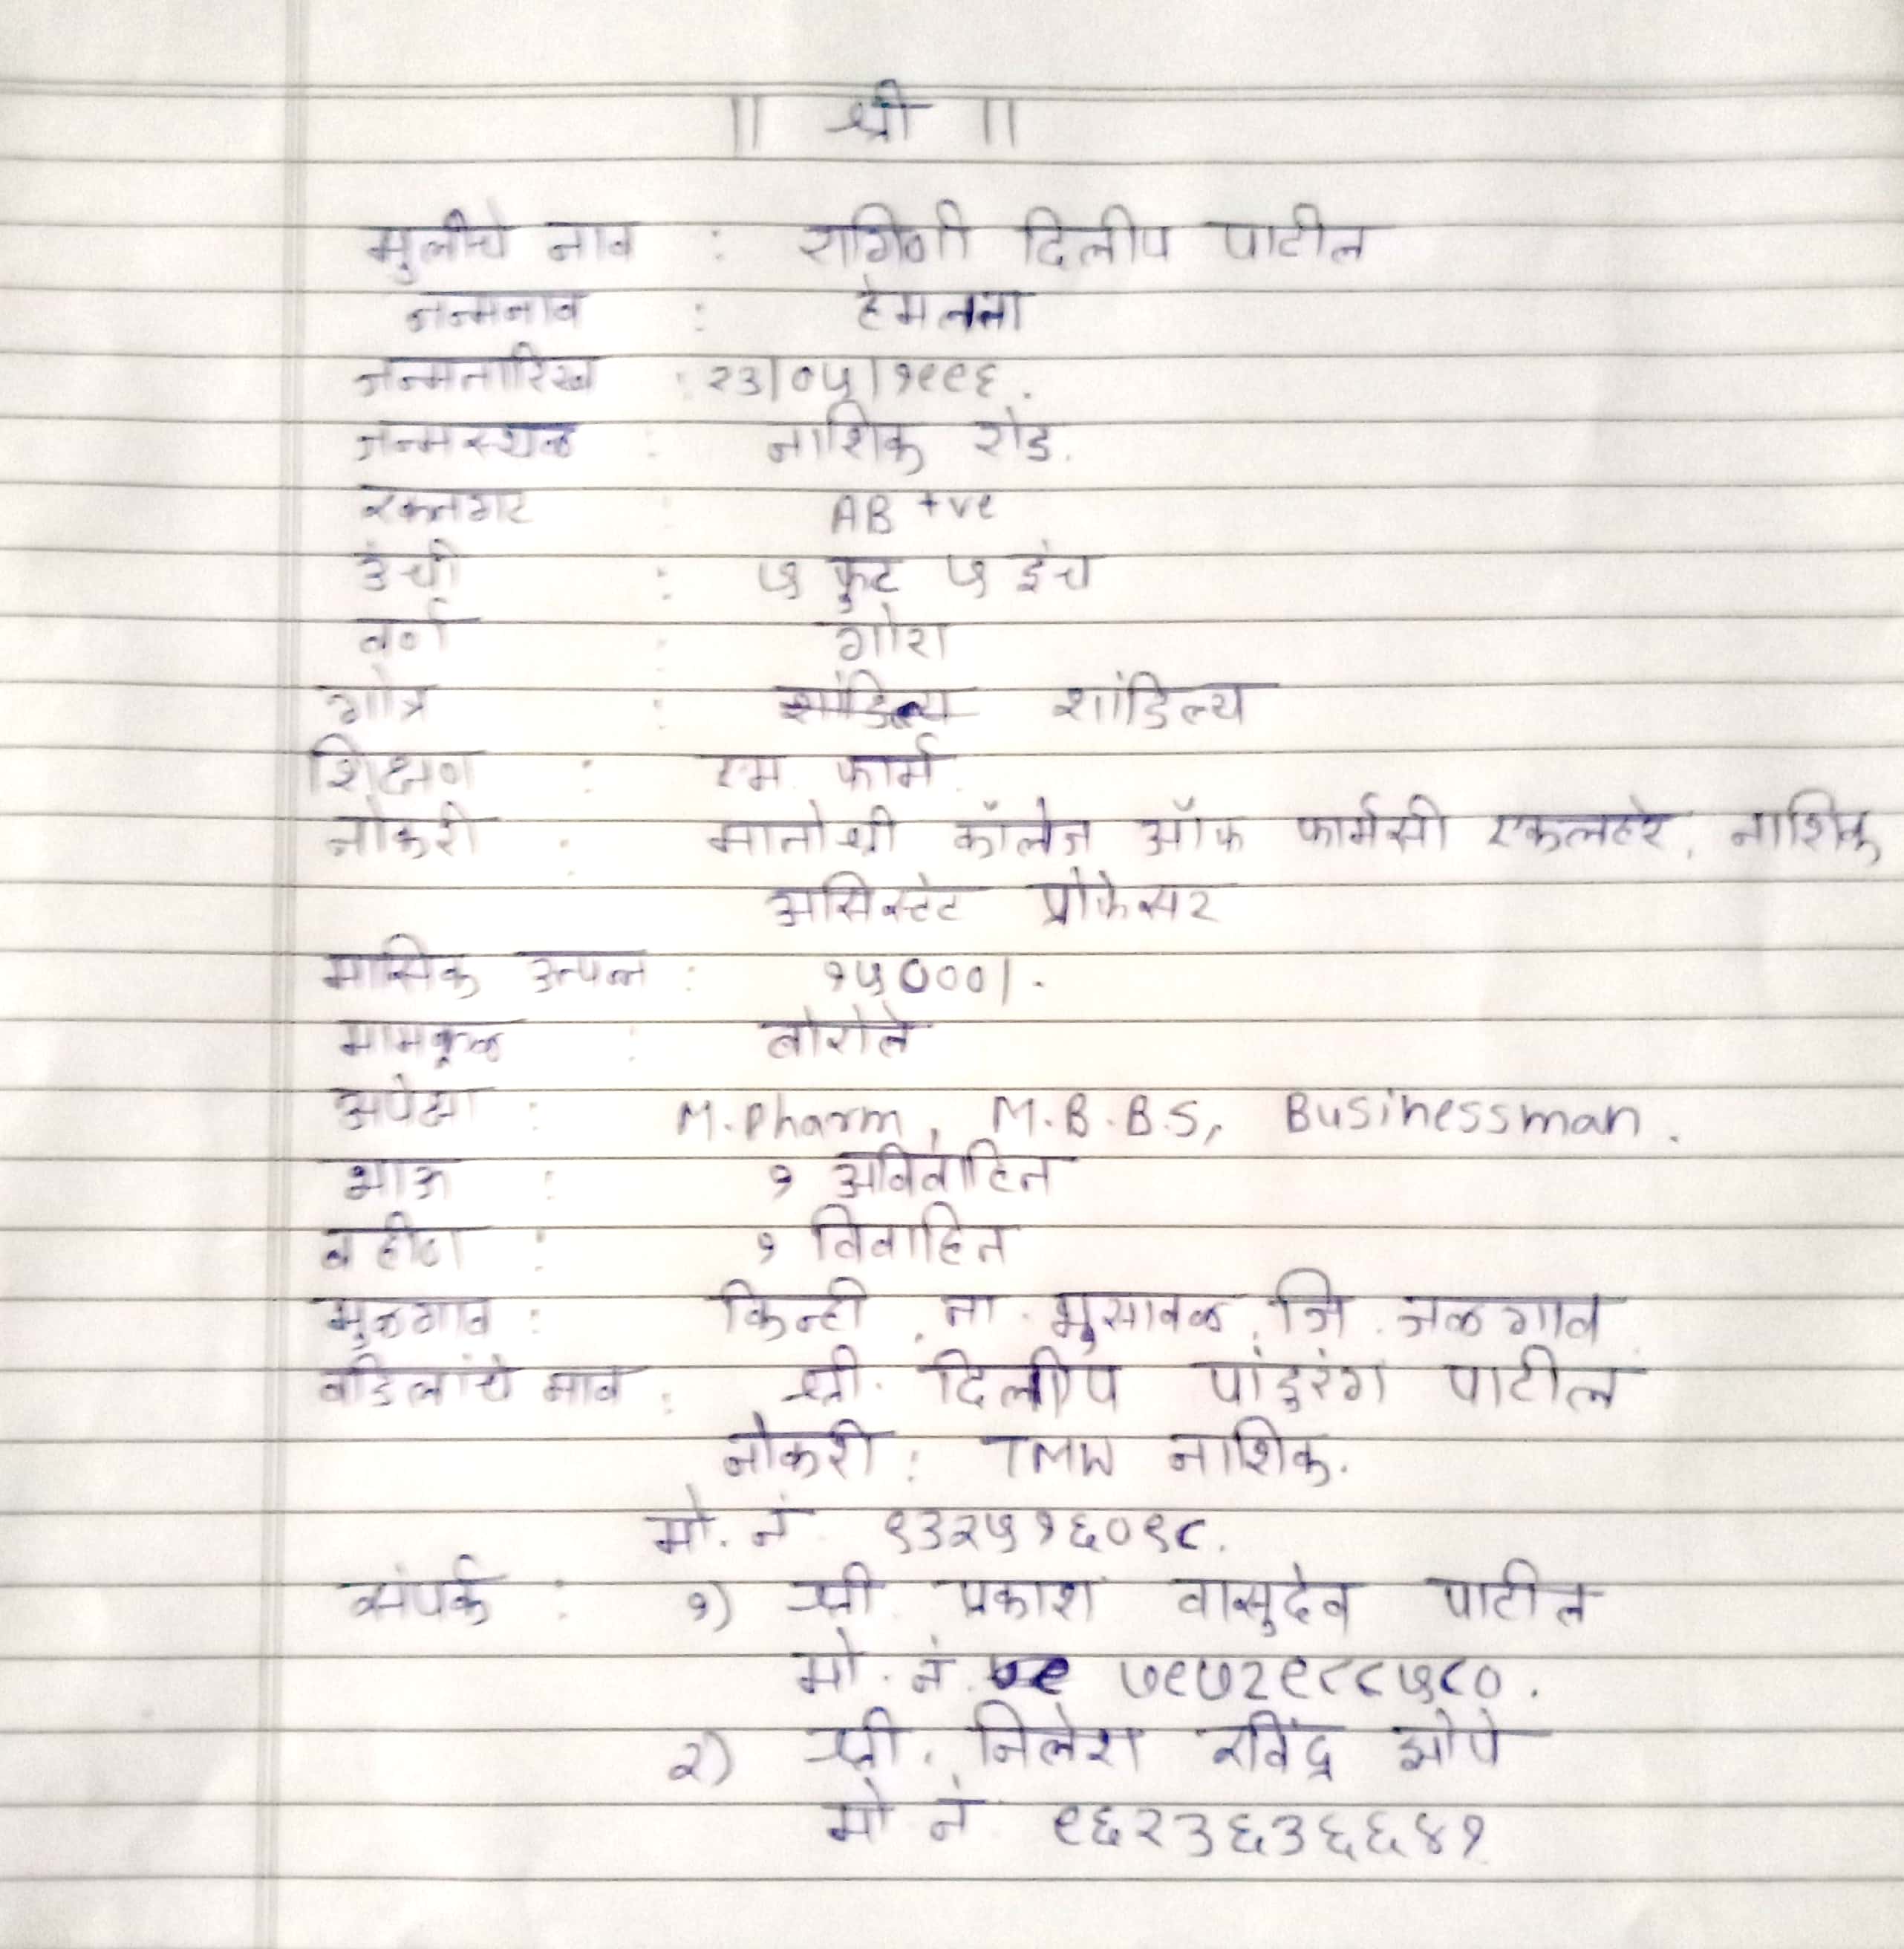 || श्री ||
मुलीचे नाव : रागिणी दिलीप पाटील
जन्मनाव : हेमलता
जन्मतारिख : २३/०५/१९९६.
जन्मस्थळ : नाशिक रोड.
रक्तगट : AB +ve
उंची : ५ फुट ५ इंच
वर्ण : गोरा
गोत्र : शांडिल्य शांडिल्य
शिक्षण : एम. फार्म.
नोकरी : मातोश्री कॉलेज ऑफ फार्मसी एकलहरे, नाशिक
असिस्टंट प्रोफेसर
मासिक उत्पन्न : १५०००/.
मामकूळ : बोरोले
अपेक्षा : M.Pharm, M.B.B.S, Businessman.
भाऊ : १ अविवाहित
बहीण : १ विवाहित
मुळगाव : किन्ही, ता. भुसावळ, जि. जळगाव
वडिलांचे नाव : श्री. दिलीप पांडुरंग पाटील
नोकरी : TMW नाशिक.
मो. नं. ९३२५१६०९८.
संपर्क : १) श्री. प्रकाश वासुदेव पाटील
मो. नं. ७९७२९८८५८०.
२) श्री. निलेश रविंद्र झोपे
मो नं. ९६२३६३६६४१